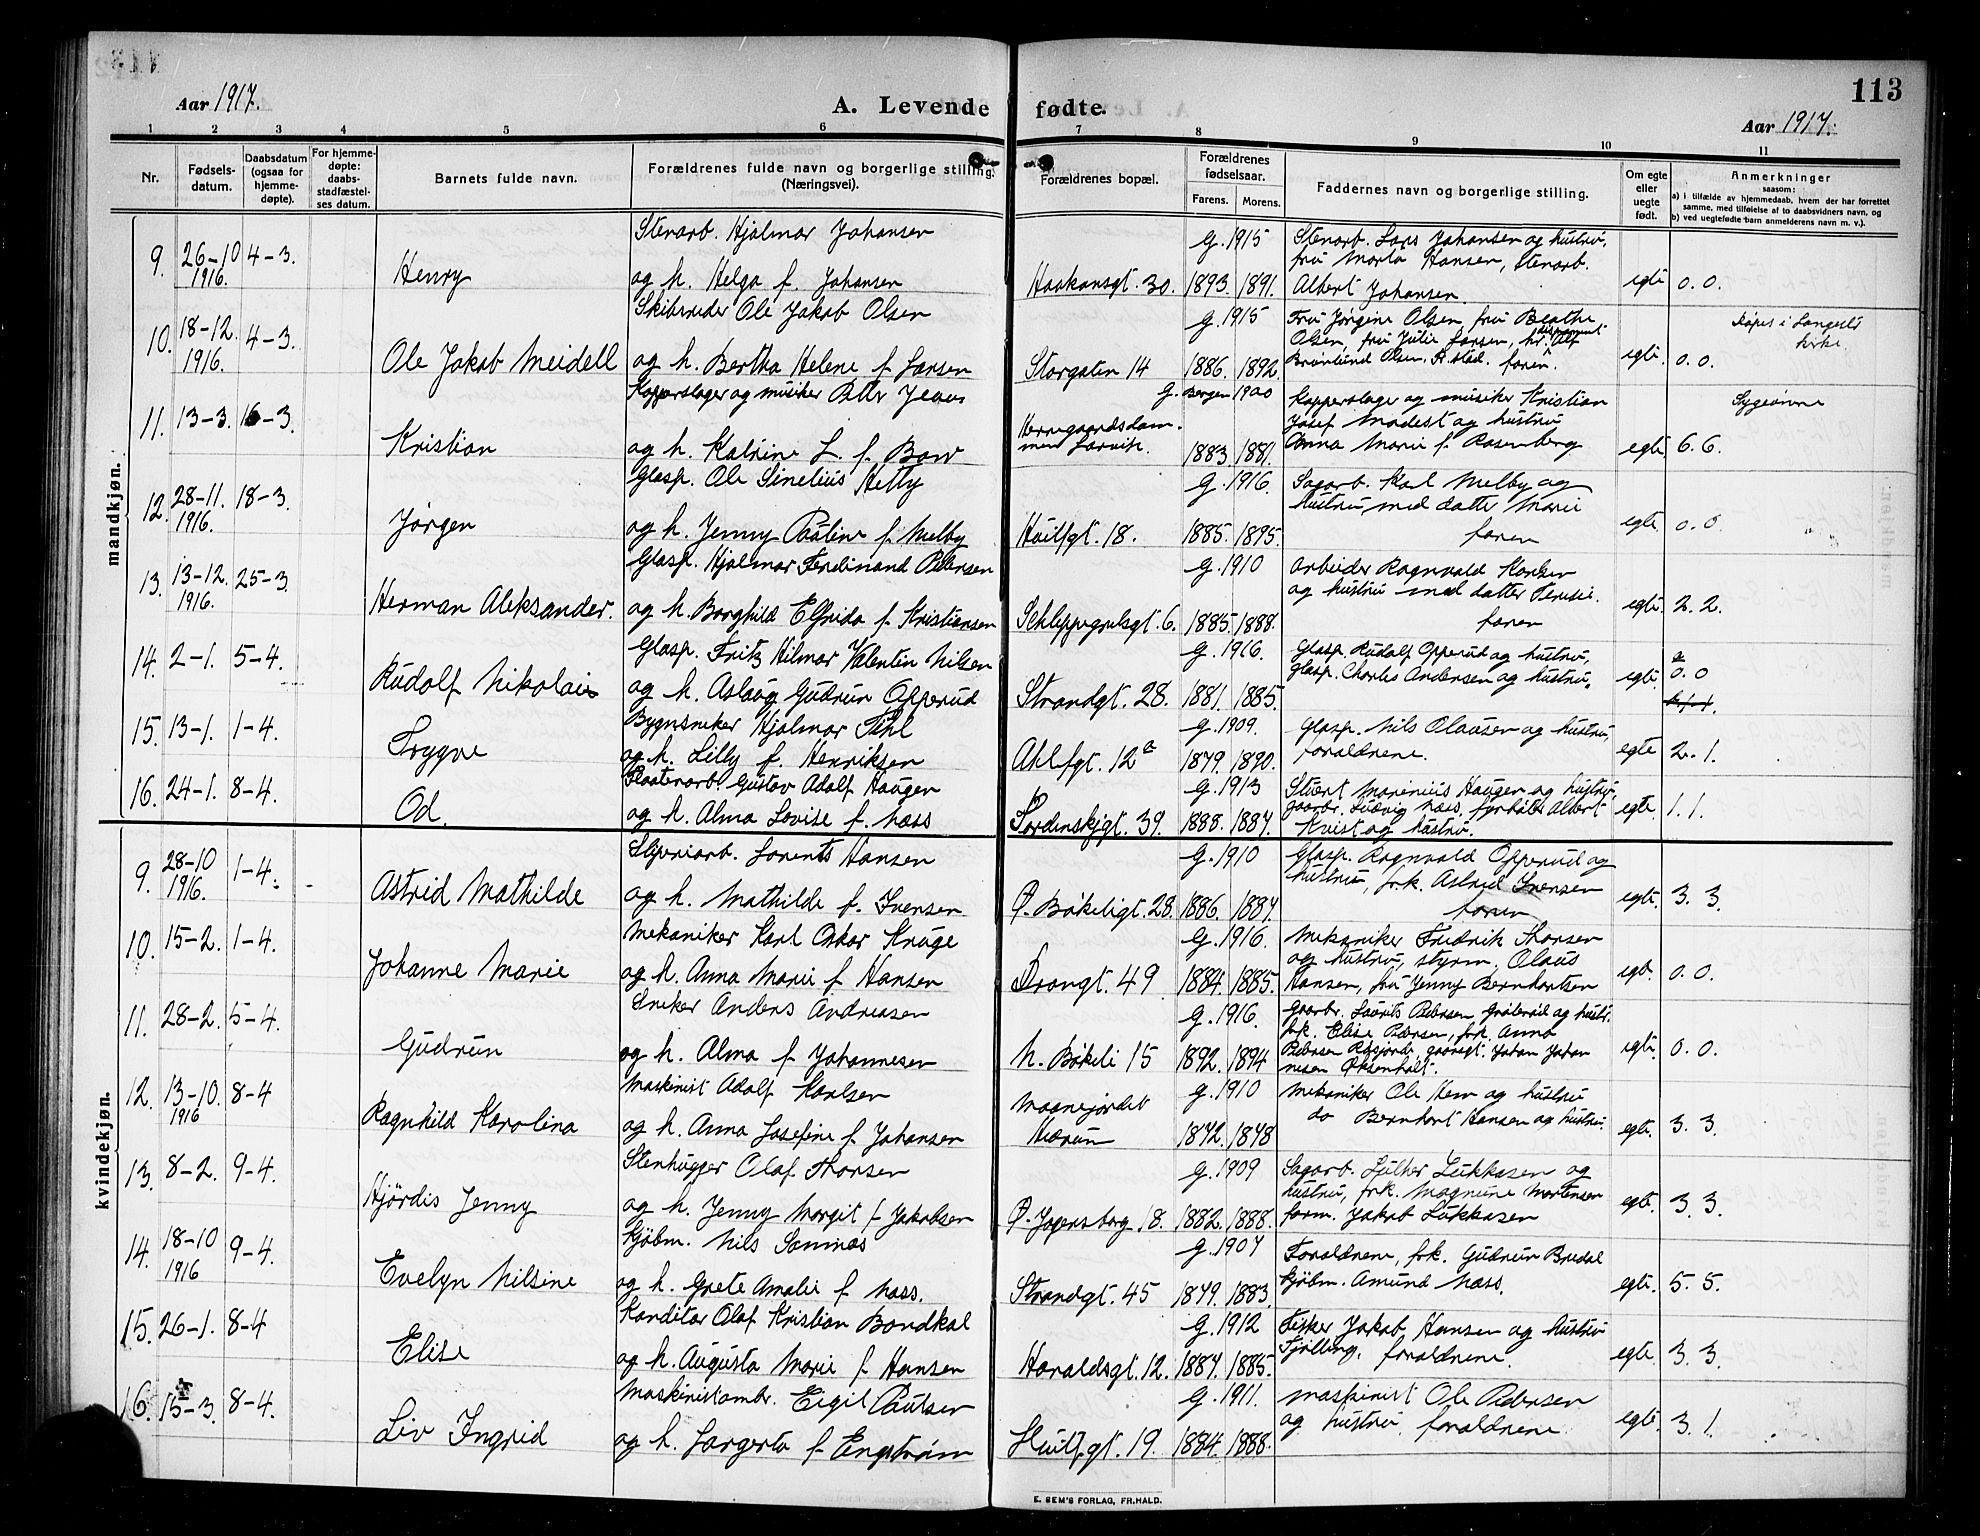 113
Aar 1917.
A. Levende fødte.
Aar 1917.
1 2 3 4 5 6 7 8 9 10 11
Nr.
Fødsels-
datum.
Daabsdatum
(ogsaa for
hjemme-
døpte).
For hjemme-
døpte:
daabs-
stadfæstel-
ses datum.
Barnets fulde navn.
Forældrenes fulde navn og borgerlige stilling.
(Næringsvei).
Forældrenes bopæl.
Forældrenes
fødselsaar.
Farens. Morens.
Faddernes navn og borgerlige stilling.
Om egte
eller
uegte
født.
Anmerkninger
saasom:
a) i tilfælde av hjemmedaab, hvem der har forrettet
samme, med tilføielse af to daabsvidners navn, og
b) ved uegtefødte barn anmelderens navn m. v.).
mandkjøn.
Stenarb. Hjalmar Johansen
g. 1915 Stenarb. Lars Johansen og hustru,
9. 26-10 4-3.
1916.
fru Marta Hansen, Stenarb.
Henry og h. Helga f. Johansen Haakonsgt. 30. 1893. 1891. Albert Johansen. egte 0.0.
Skibsreder Ole Jakob Olsen
g. 1915 Fru Jørgine Olsen, fru Beathe
10. 18-12. 4-3.
1916.
Olsen, fru Julie Larsen, hr. Alf
Ole Jakob Meidell og h. Bertha Helene f. Larsen Storgaten 14 1886. 1892. Brünlund Olsen, faren. egte 0.0.
Døpt i Langestr.
kirke.
Kopperslager og musiker
g. Bergen 1900 Kopperslager og musiker Kristian
11. 13-3. 16-3.
Josef Modest og hustru
Sygdøme
Kristian og h. Katrine L. f. Bow Herregaardsdam-
men Larvik. 1883 1881. Anna Marie f. Rosenberg egte 6.6.
Glasp. Ole Sinelius Hetty
g. 1916. Sagarb. Karl Melby og
12. 28-11. 18-3.
1916.
hustru med datter Marie
Jørgen og h. Jenny Pauline f. Melby Huitfgt. 18. 1885. 1895. faren egte 0.0
Glasp. Hjalmar Ferdinand Pedersen
g. 1910 Arbeider Ragnvald Karlsen
13. 13-12. 25-3.
1916.
og hustru med datter
Herman Aleksander. og h. Borghild Elfrida f. Kristiansen Schleppegrelsgt. 6. 1885. 1888. faren egte. 2.2.
Glasp. Fritz Hilmar Valentin Nilsen
g. 1916. Glasp. Rudolf Opperud og hustru,
14. 2-1. 5-4.
glasp. Charles Andersen og hustru.
Rudolf Nikolai og h. Aslaug Gudrun Opperud Strandgt. 28. 1881. 1885. egte. 0.0
Bygnsneker Hjalmar Pihl
g. 1909. Glasp. Nils Olausen og hustru,
15. 13-1. 1-4.
Trygve og h. Lilly f. Henriksen Ahlfgt. 12a 1879. 1890. foraldrene. egte 2.1.
Gustav Adolf Haugen
g. 1913 Stuert Marenius Haugen og hustru,
16. 24-1. 8-4.
gaarbr. Ludvig Næss, Albert
Od. og h. Alma Lovise f. Næss Tordenskjgt. 39. 1888. 1887. Kvist og hustru. egte 1.1.
kvindekjøn.
Sliperiarb. Lorents Hansen
g. 1910 Glasp. Ragnvald Opperud og
9. 28-10 1-4.
1916.
hustru, frk. Astrid Iversen
Astrid Mathilde og h. Mathilde f. Iversen Ø. Bøkeligt. 28. 1886. 1887. faren egte. 3.3.
Mekaniker Karl Oskar Kruge
g. 1916. Mekaniker Fredrik Thorsen
10. 15-2. 1-4.
og hustru, styrm. Olaus
Johanne Marie og h. Anna Marie f. Hansen Drongt. 49 1884. 1885. Hansen, fru Jenny Bernhartsen egt. 0.0.
Sneker Anders Andreasen
g. 1916. Gaarbr. Laurits Pedersen og hustr.
11. 28-2. 5-4.
frk. Elise Pedersen, frk. Anna
Gudrun og h. Alma f. Johannesen N. Bøkeli 15 1892. 1894 Pedersen Johan Johan
nesen Oksenholt. egte. 0.0.
Maskinist Adolf Karlsen
g. 1910 Mekaniker Ole Hem og hustru
12. 13-10. 8-4
1916
do Bernhart Hansen og hustru.
Ragnhild Karolina og h. Anna Josefine f. Johansen Magnejordet
Hærum 1872. 1878 egte. 3.3.
Stenhugger Olaf Thorsen
g. 1909 Sagarb. Luther Lukkasen og
13. 8-2. 9-4.
hustru, frk. Magnine Mortensen
Hjördis Jenny og h. Jenny Margit f. Jakobsen Ø. Jegersborg 18. 1882. 1888. form. Jakob Lukkasen egte. 3.3.
Kjøbm. Nils Sannæs
g. 1907 Foraldrene, frk. Gudrun Bredal
14. 18-10 9-4.
1916
Evelyn Nilsine og h. Grete Amalie f. Næss. Strandgt. 45 1879. 1883. kjøbm. Amund Næss. egte. 5.5.
Konditor Olaf Kristian Bondkal
g. 1912 Fisker Jakob Hansen og hustru
15. 26-1. 8-4
Elise og h. Augusta Marie f. Hansen Haraldsgt. 12. 1887. 1885. Tjølling, foraldrene. egte. 3.3.
Eigil Paulsen
g. 1911. Maskinist Ole Pedersen
16. 15-3. 8-4.
Liv Ingrid og h. Sargerta f. Engstrøm Huitfgt. 19. 1884. 1888. og hustru, foraldrene. egte. 3.1.
E. SEM'S FORLAG, FR.HALD.